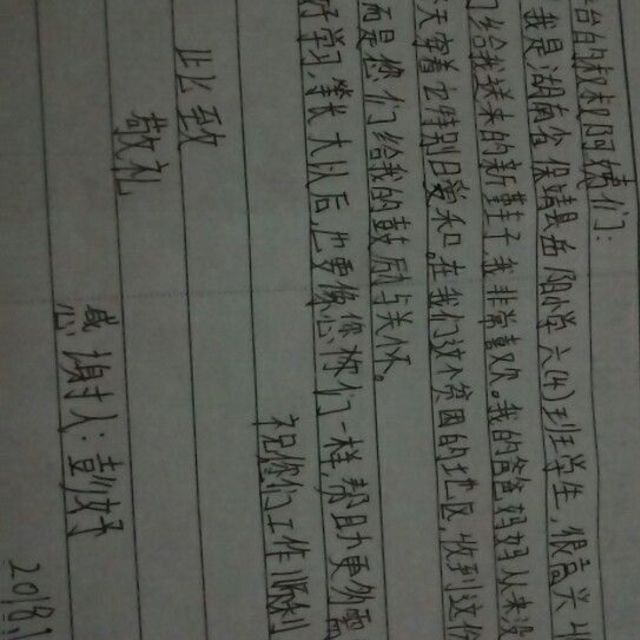 叔叔阿姨们:
我是湖南省保靖县 小学六(4)班学生,很高兴
们给我送来的新鞋子,我非常喜欢。我的爸爸妈妈从来没
天穿着它特别 和。在我们这个贫困的地区,收到这份
而是您们给我的鼓励与关怀。
好学习,长大以后也要像您你们一样,帮助更多需
祝你们工作顺利
此致
敬礼
感谢人:
2018.1